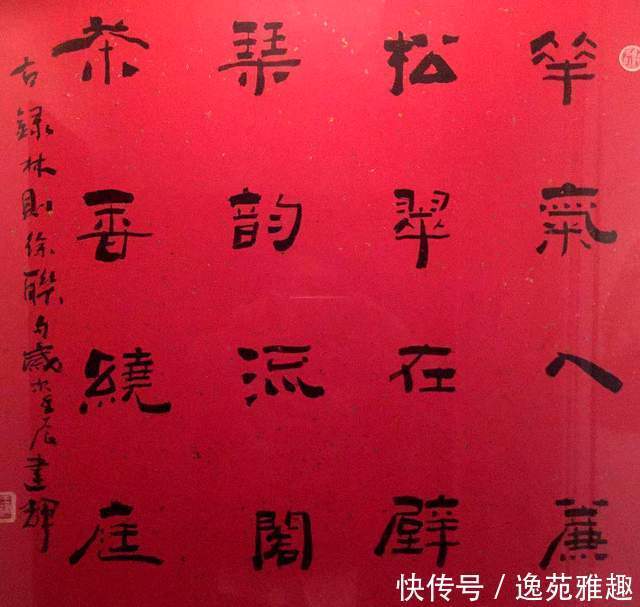 竿氣入簾
松翠在壁
琴韵流閣
茶香繞庭
古錄林則徐聯句歲次壬辰建輝
快传号 / 逸苑雅趣